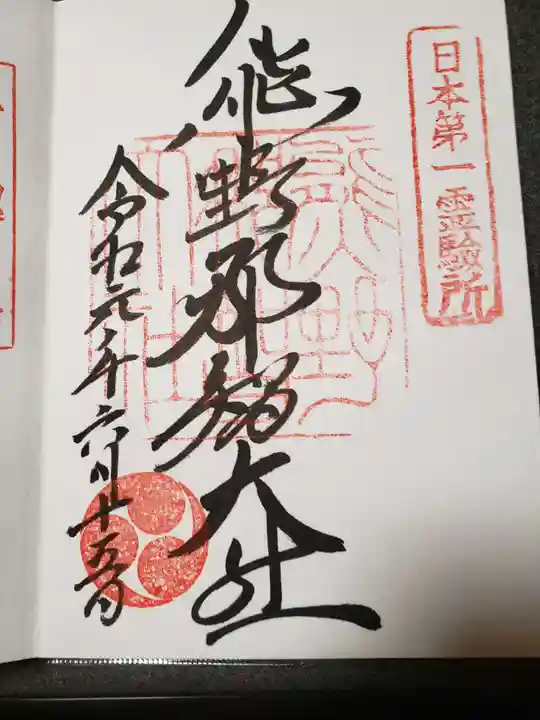 日本第一霊験所
熊野那智大社
令和元年六月十五日